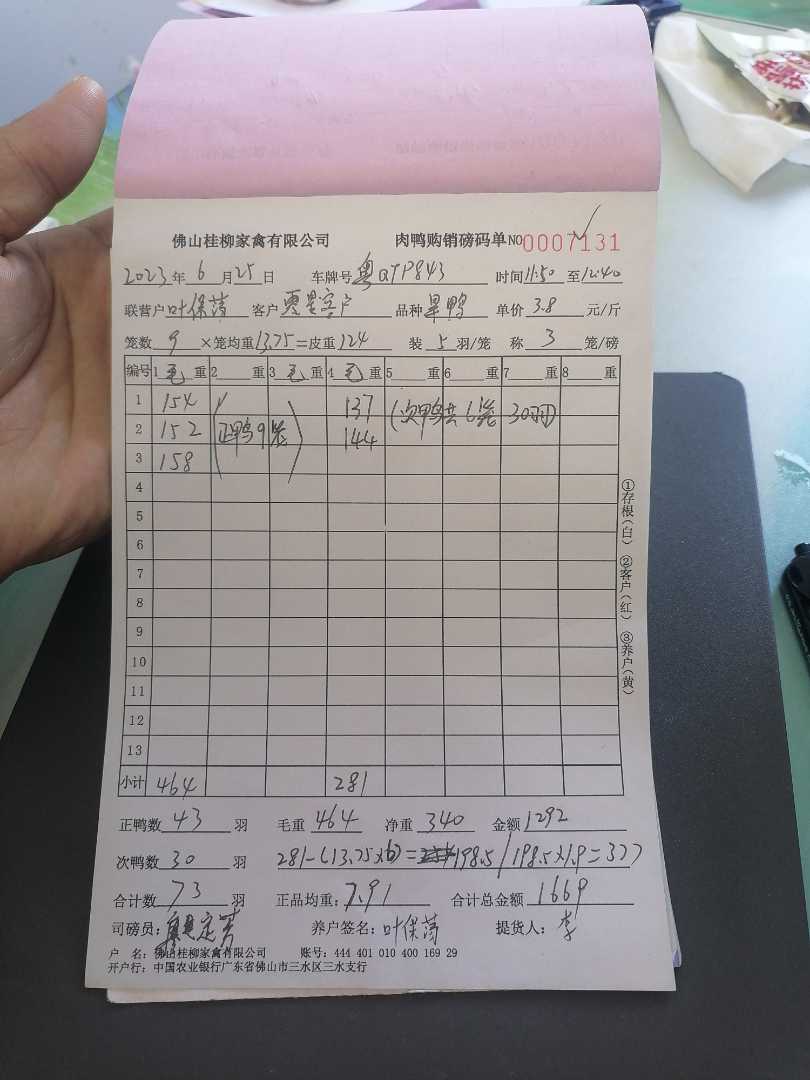 佛山桂柳家禽有限公司 肉鸭购销磅码单 NO 0007131
2023年6月25日 车牌号 粤QTP843 时间11:50至12:40
联营户 叶保 客户 零星客户 品种 鸭 单价 3.8 元/斤
笼数 9 ×笼均重13.75=皮重124 装 5 羽/笼 称 3 笼/磅
编号 1 毛 重 2 重 3 毛 重 4 毛 重 5 重 6 重 7 重 8 重
1 154 137 (次鸭共6笼 30羽)
2 152 (正鸭9笼) 144
3 158
4
5
6
7
8
9
10
11
12
13
小计 464 281
正鸭数 43 羽 毛重 464 净重 340 金额 1292
次鸭数 30 羽 281-(13.75×6)=198.5/198.5×1.9=377
合计数 73 羽 正品均重: 7.91 合计总金额 1669
司磅员: 养户签名: 叶保 提货人: 李
户 名: 佛山桂柳家禽有限公司 账号: 444 401 010 400 169 29
开户行: 中国农业银行广东省佛山市三水区三水支行
①存根(白) ②客户(红) ③养户(黄)